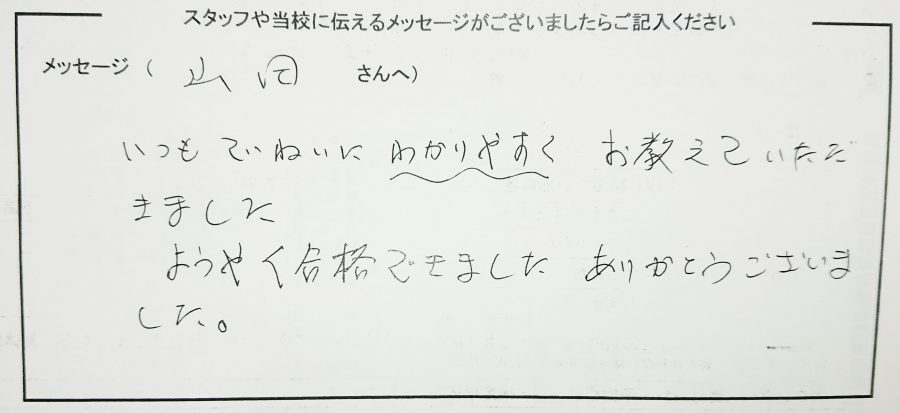 スタッフや当校に伝えるメッセージがございましたらご記入ください
メッセージ ( 山 さんへ)
いつもていねいに わかりやすく お教えていただ
きました
ようやく合格できました ありがとうございま
した。